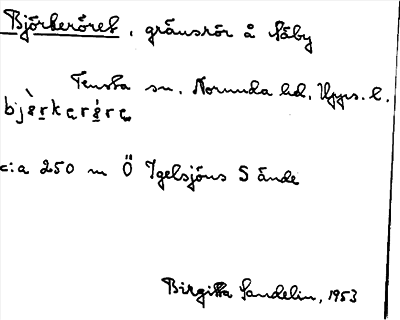 Björkeröret, gränsrör å Säby
Tensta sn. Norunda hd. Upps. l.
c:a 250 m Ö Igelsjöns S ände
Birgitta Sandelin, 1953